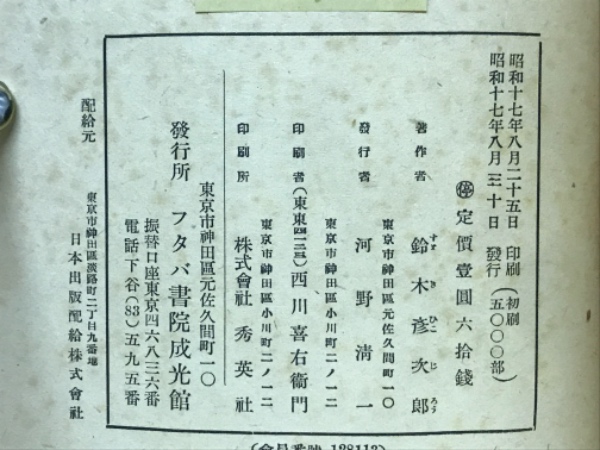 昭和十七年八月二十五日 印刷
昭和十七年八月三十日 發行
(初刷 五〇〇〇部)
停 定價壹圓六拾錢
著作者 鈴木彦次郎
すずきひこじろう
東京市神田區元佐久間町一〇
發行者 河野淸一
東京市神田區小川町二ノ一二
印刷者 (東東四一三) 西川喜右衞門
東京市神田區小川町二ノ一二
印刷所 株式會社 秀英社
東京市神田區元佐久間町一〇
發行所 フタバ書院成光館
振替口座東京四六八三六番
電話下谷(83)五九五番
配給元 東京市神田區淡路町二丁目九番地
日本出版配給株式會社
(會員番號 128113)